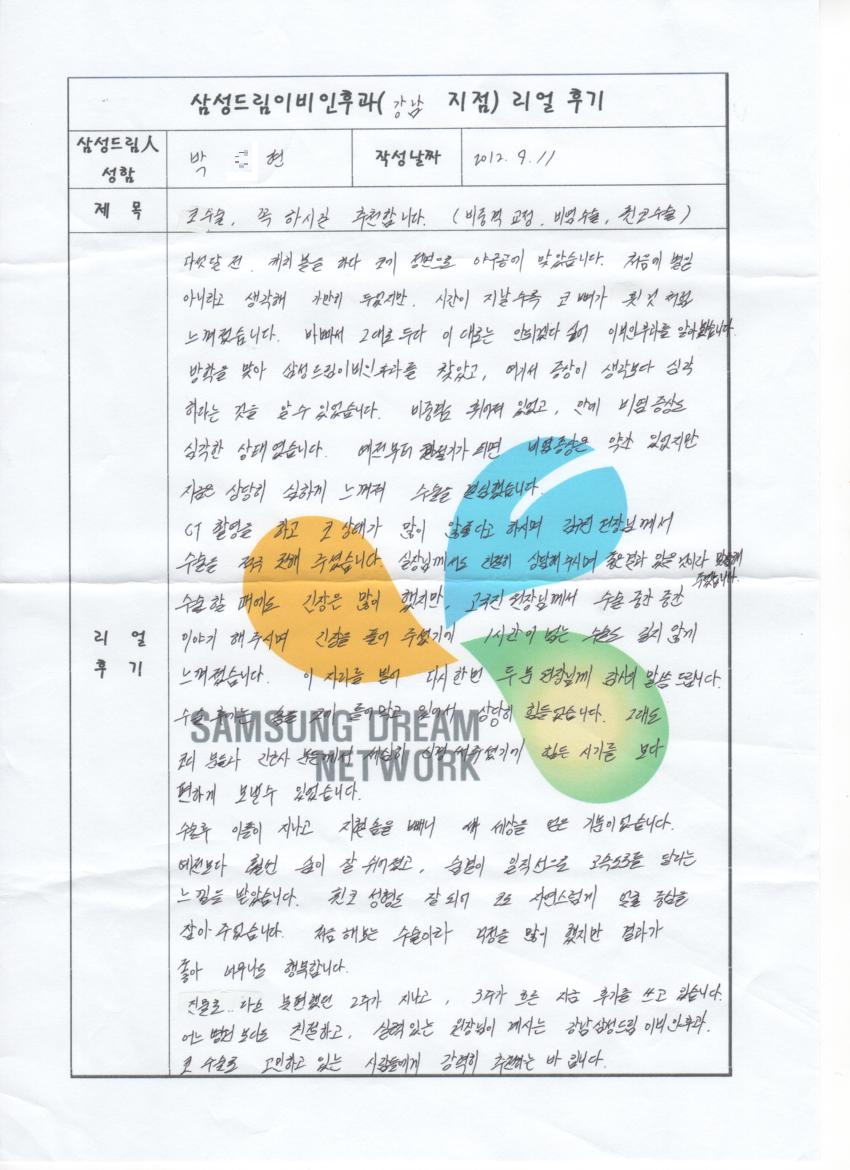 삼성드림이비인후과( 강남 지점) 리얼 후기
삼성드림人 성함
박 현
작성날짜
2012. 9. 11
제 목
코수술, 꼭 하시길 추천합니다. (비중격 교정, 비염수술, 휜코수술)
리 얼 후 기
다섯달 전, 캐치볼을 하다 코기 정면으로 야구공에 맞았습니다. 처음에 별일
아니라고 생각해 가만히 두었지만, 시간이 지날수록 코 뼈가 휜 것 처럼
느껴졌습니다. 바빠서 그대로 두다 이 대로는 안되겠다 싶어 이비인후과를 알아봤습니다.
방학을 맞아 삼성드림이비인후과를 찾았고, 여기서 증상이 생각보다 심각
하다는 것을 알 수 있었습니다. 비중격도 휘어져 있었고, 안에 비염 증상도
심각한 상태였습니다. 예전부터 환절기가 되면 비염증상은 약간 있었지만
지금은 상당히 심하게 느껴져 수술을 결심했습니다.
CT 촬영을 하고 코 상태가 많이 안좋다고 하시며 원장님께서
수술을 적극 권해 주셨습니다. 실장님께서도 친절히 상담해주시며 좋은결과 있을 것이라 말씀해
주셨습니다.
수술 할 때에도 긴장은 많이 했지만, 고국진 원장님께서 수술 중간 중간
이야기 해주시며 긴장을 풀어 주셨기에 1시간이 넘는 수술도 길지 않게
느껴졌습니다. 이 자리를 빌어 다시한번 두 분 원장님께 감사의 말씀 드립니다.
수술 후에는 솜을 코에 틀어막고 있어서 상당히 힘들었습니다. 그래도
코디 분들과 간호사 분들께서 세심히 신경써주셨기에 힘든 시기를 보다
편하게 보낼수 있었습니다.
SAMSUNG DREAM
NETWORK
수술후 이틀이 지나고 지혈솜을 빼니 새 세상을 얻은 기분이었습니다.
예전보다 훨씬 숨이 잘 쉬어졌고, 숨결이 일직선으로 고속도로를 달리는
느낌을 받았습니다. 휜코 성형도 잘 되어 코도 자연스럽게 얼굴 중심을
잡아 주었습니다. 처음 해보는 수술이라 걱정을 많이 했지만 결과가
좋아 너무나도 행복합니다.
진물로.. 다소 불편했던 2주가 지나고, 3주가 흐른 지금 후기를 쓰고 있습니다.
어느 병원 보다도 친절하고, 실력있는 원장님이 계시는 강남삼성드림 이비인후과.
코 수술로 고민하고 있는 사람들에게 강력히 추천하는 바 입니다.